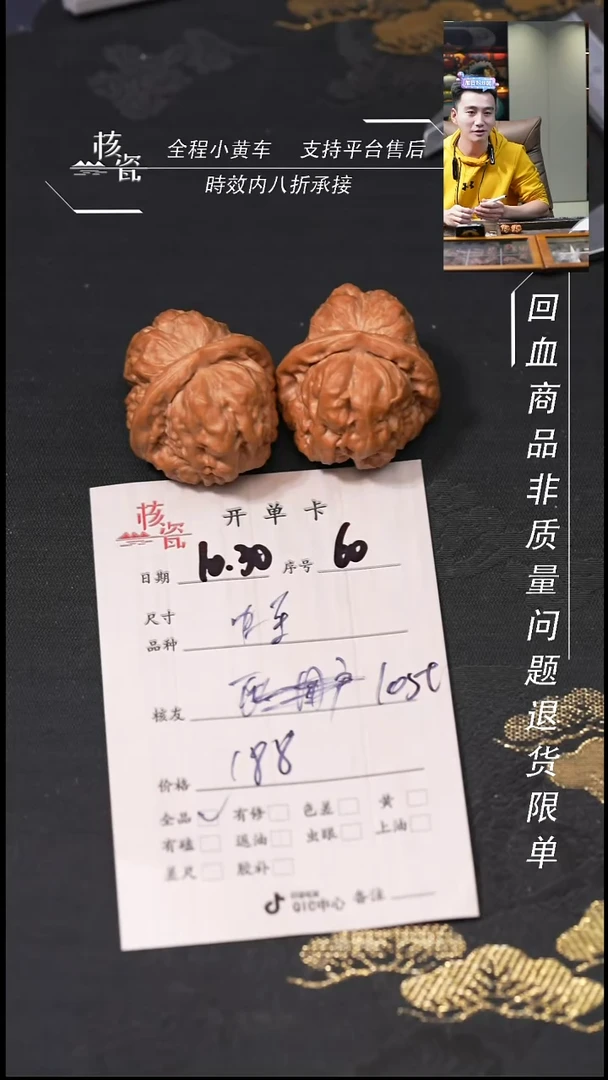 核瓷
全程小黄车 支持平台售后
時效内八折承接
回血商品非质量问题退货限单
核瓷
开单卡
日期 10.30 序号 60
尺寸
品种
核友 lost
价格 188
全品 有修 色差 黄
有磕 返油 虫眼 上油
差尺 胶补
QIC中心 备注